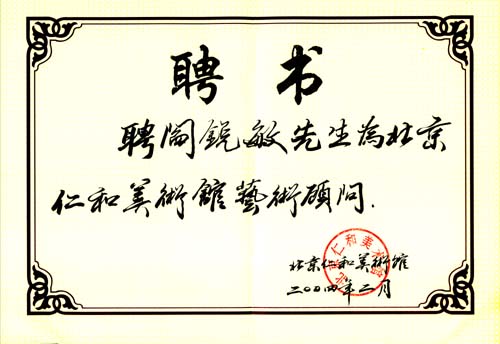 聘书
聘阎锐敏先生為北京
仁和美術館藝術顾问.
北京仁和美術館
北京仁和美术館
二〇〇四年二月